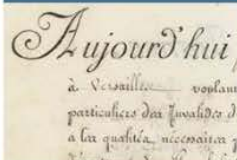 Aujourd'hui
à Versailles voulant
particuliers des Invalides d
à les qualités necessaires p